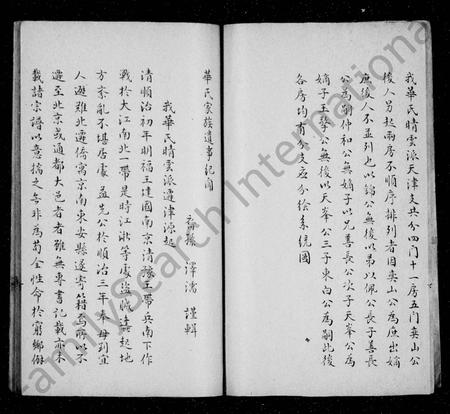 我華氏晴雲派天津支共分四門十一房五門奕山公
後人另起兩房不順序排列者因奕山公為庶出嫡
庶後人不並列也以銘公無後以弟以佩公長子善長
公為嗣仲和公無嫡子以兄善長公次子天峯公為
嫡子玉擎公無後以天峯公三子東白公為嗣此後
各房均有分支應分繪系統圖
華氏家族遺事紀聞
裔孫 澤潘 謹輯
我華氏晴雲派遷津源起
清順治初年明福王建國南京清豫王帶兵南下作
戰於大江南北一帶是時江浙等處盜賊蜂起地
方紊亂不堪居處 益先公於順治三年奉母到宜
人避難北遷僑寓京南東安縣遂寄籍焉所以不
遷至北京或通都大邑者雖無專書記載亦未
載諸宗譜以意揣之等非為苟全性命於窮鄉僻
FamilySearch International